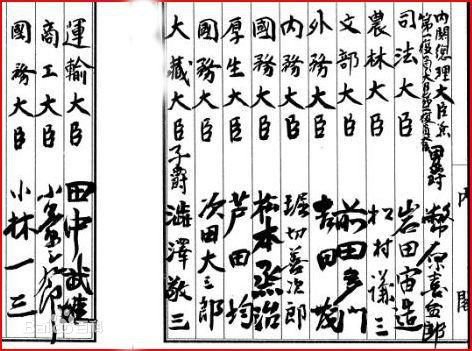 内閣
内閣總理大臣兼
第一復員大臣第二復員大臣 男爵 幣原喜重郎
司法大臣 岩田宙造
農林大臣 松村謙三
文部大臣 前田多門
外務大臣 吉田茂
内務大臣 堀切善次郎
國務大臣 松本烝治
厚生大臣 芦田均
國務大臣 次田大三郎
大藏大臣 子爵 澁澤敬三
運輸大臣 田中武雄
商工大臣 小笠原三九郎
國務大臣 小林一三